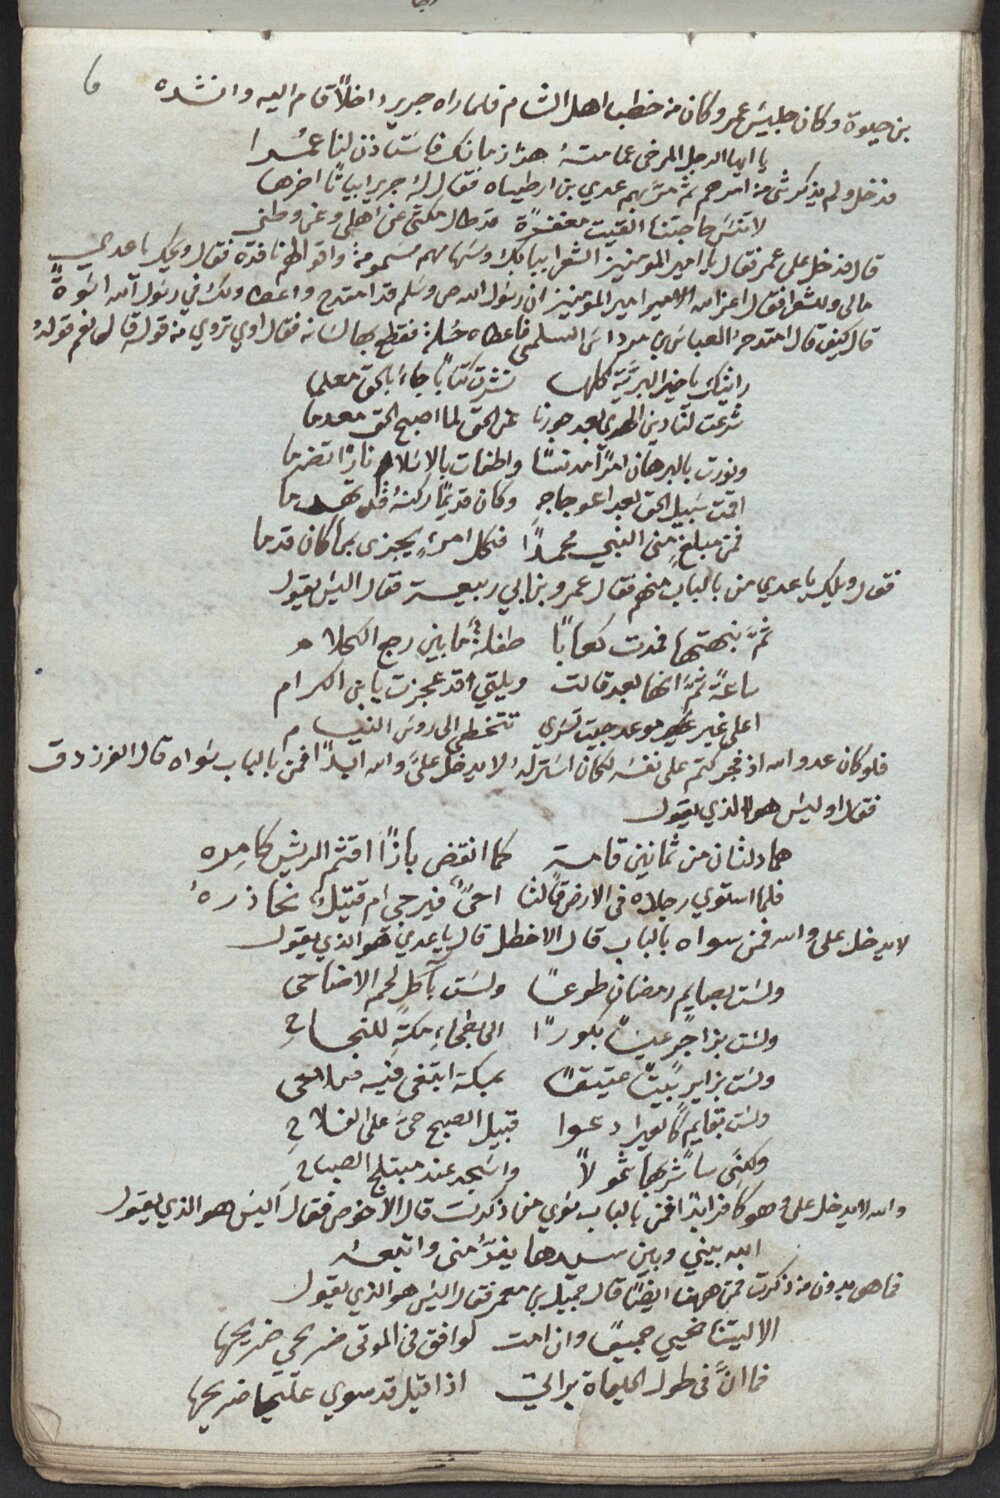 ٦
بن حيوة وكان جليس عمر وكان من خطباء اهل الشام فلما راه جرير داخلاً قام اليه وانشده
يا ايها الرجل المرخى عمامته هذا زمانك فاستاذن لنا عمرا
فدخل ولم يذكر شى من امرهم ثم مر بهم عدي بن ارطياه فقال له جرير ابياتاً اخرها
لا تنس حاجتنا القيت مغفرة قد طال مكثى عن اهلى وعن وطنى
قال فدخل على عمر فقال يا امير المومنين الشعرا ببابك وسهامهم مسمومة واقوالهم نافذة فقال ويحك يا عدي
مالى وللشعرا فقال اعز الله الامير امير المؤمنين ان رسول الله ص وسلم قد امتدح واعطا ولك في رسول الله اسوة
قال كيف قال امتدحه العباس بن مرداس السلمى فاعطاه حلة فقطع بها لسانه فقال اوي تروي من قوله قال نعم قوله
رايتك يا خير البرية كلها نشرت كتاباً جاء بالحق معلما
شرعت لنا دين الهدى بعد جورنا عن الحق لما اصبح الحق معدما
ونورت بالبرهان امراً مدنسًا واطفات بالاسلام ناراً تضرما
اقمت سبيل الحق بعد اعوجاجه وكان قديماً ركنه قد تهدما
فمن مبلغ منى النبي محمداً فكل امرء يجزى بما كان قدما
فقال ويلك يا عدي من بالباب منهم فقال عمرو بن ابي ربيعة فقال اليس يقول
ثم نبهتها فمدت كعابًا طفلة ما بين رجع الكلام
ساعة ثم انها بعد قالت ويلتي قد عجزت يا بن الكرام
اعلى غير موعد جيت تسري تتخطى الى روس النيام
فلو كان عدو الله اذ فجر كتم على نفسه لكان استر له لا يدخل علي والله ابداً فمن بالباب سواه قال الفرزدق
فقال اوليس هو الذي يقول
هما دلتان من ثمانين قامة كما انقض بازاً اقتم الريش كامره
فلما استوي رجلاه فى الارض قالتا احيٌ فيرجى ام قتيل نحاذره
لا يدخل على والله فمن سواه بالباب قال الاخطل قال يا عدي هو الذي يقول
ولست بصايم رمضان طوعًا ولست بآكل لحم الاضاحى
ولست بزاجر عيسًا بكورًا الى بطحاء مكة للنجاح
ولست بزاير بيتًا عتيقًا بمكة ابتغى فيه صلاحى
ولست بقايم كالعير ادعوا قبيل الصبح حى على الفلاح
ولكنى ساشربها شمولاً واسجد عند مبتلج الصباح
والله لا يدخل على وهو كافر ابدًا فمن بالباب سوي من ذكرت قال الاخوص فقال اليس هو الذي يقول
الله بيني وبين سيدها يفر منى واتبعه
فما هى بدون من ذكرت فمن ههنا ايضًا قال جميل بن معمر فقال اليس هو الذي يقول
الا ليتنا نحيي جميعًا وان امت لوافق فى الموتى ضريحى ضريحها
فما ان فى طول الحياة براغب اذا قيل قد سوي عليها ضريحها